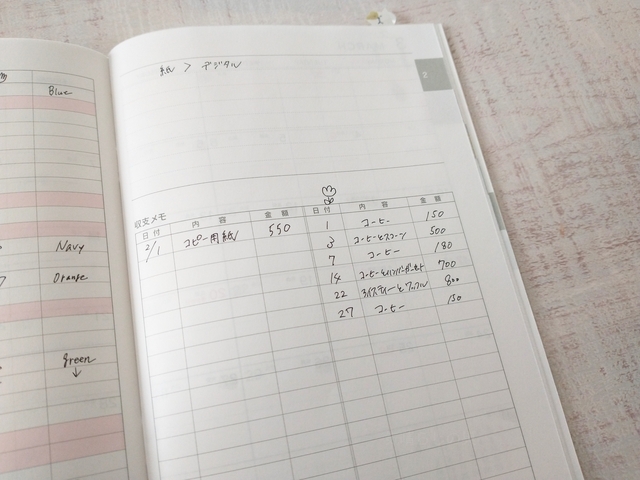 Blue
Navy
Orange
green
紙 > デジタル
2
収支メモ
日付 内容 金額 日付 内容 金額
2/1 コピー用紙 550 1 コーヒー 150
3 コーヒーとスコーン 500
7 コーヒー 180
14 コーヒーとハンバーガーセット 700
22 アイスティーとワッフル 800
27 コーヒー 150